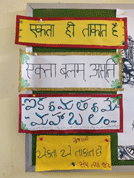 एकता ही ताकत है
एकता बलम् अस्ति
ఐకమత్యమే
మహాబలం
એકતા એજ તાકાત છે